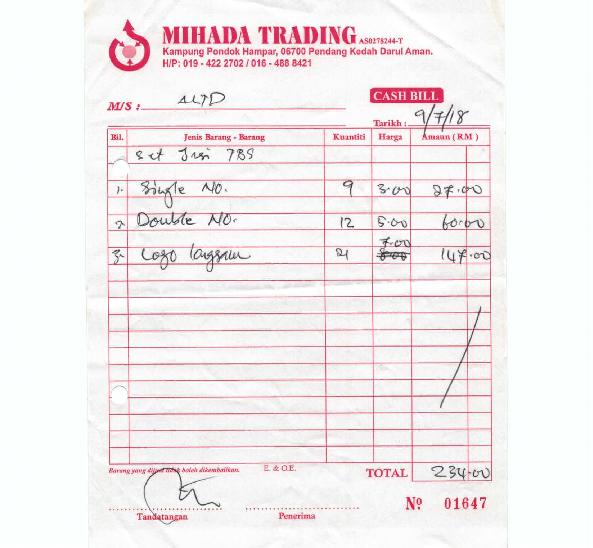 MIHADA TRADING AS0278244-T
Kampung Pondok Hampar, 06700 Pendang Kedah Darul Aman.
H/P: 019 - 422 2702 / 016 - 488 8421
CASH BILL
M/S : ALTD
Tarikh : 9/7/18
Bil. Jenis Barang - Barang Kuantiti Harga Amaun ( RM )
Set
1. Single NO. 9 3.00 27.00
2. Double NO. 12 5.00 60.00
7.00
3. Logo 21 8.00 147.00
Barang yang dijual tidak boleh dikembalikan. E. & O.E. TOTAL 234.00
Nº 01647
Tandatangan Penerima